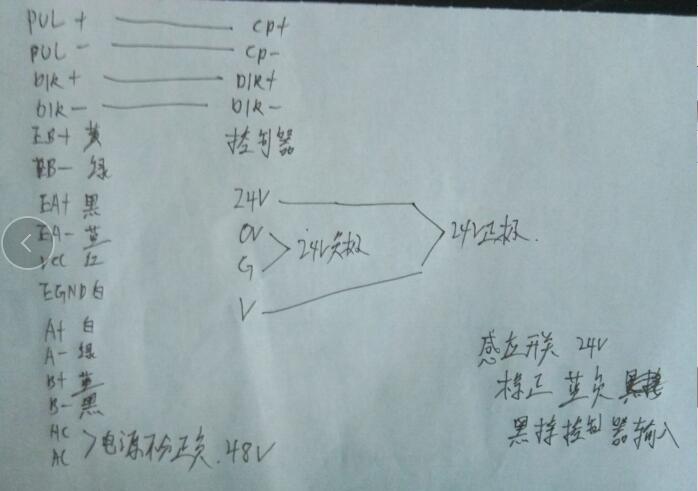 PUL + —— CP+
PUL - —— CP-
DIR + —— DIR+
DIR - —— DIR-
EB+ 黄 控制器
EB- 绿
EA+ 黑 24V
EA- 蓝 0V
VCC 红 G
EGND白 V
24V负极
24V正极.
A+ 白
A- 绿
B+ 蓝
B- 黑
AC
AC
电源不分正负.48V
感应开关 24V
棕正 蓝负
黑接控制器输入